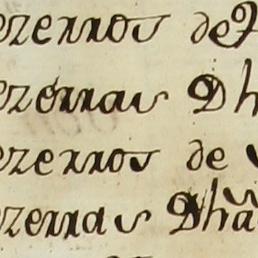 ezerros de
ezerras Dh
ezerros de
ezerras Dhã